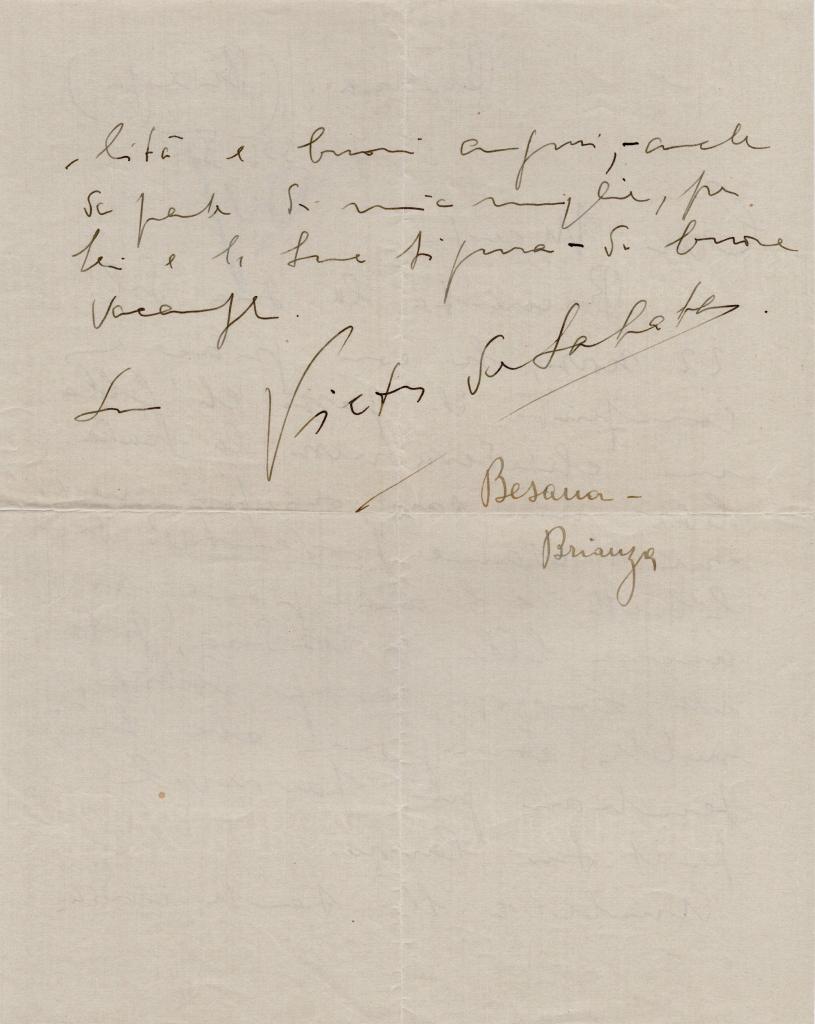 lità e buoni auguri, - anche
da parte di mia moglie, per
Lei e la Sua Signora - di buone
vacanze.
Suo Victor de Sabata.
Besana -
Brianza